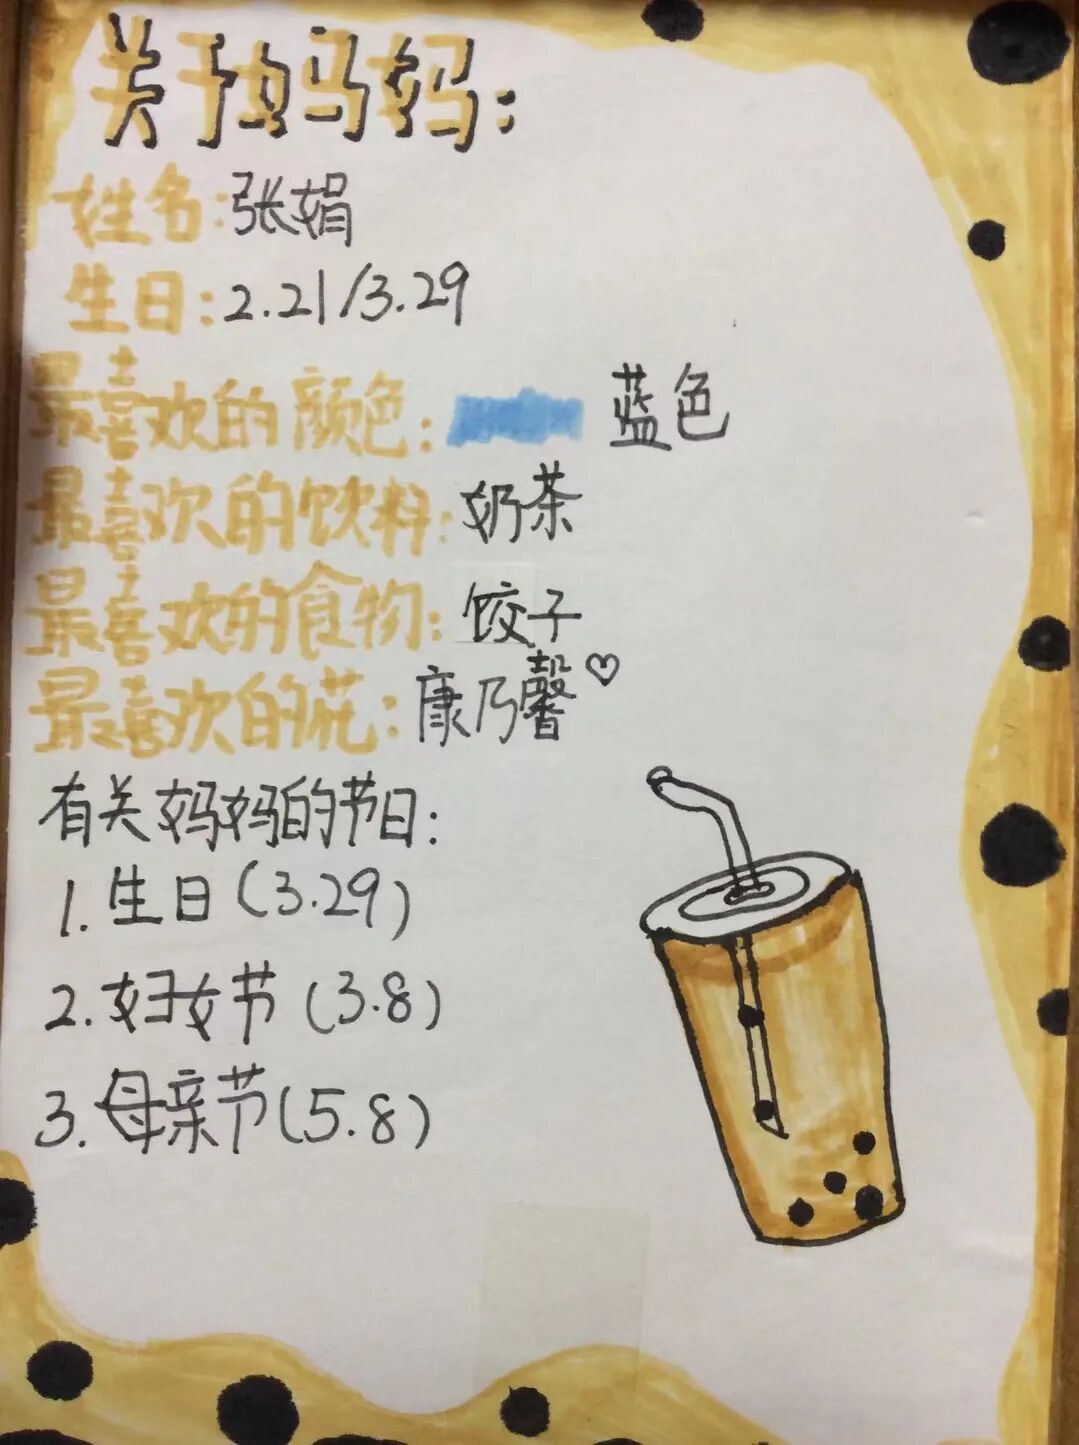 关于妈妈:
姓名:张娟
生日:2.21/3.29
最喜欢的颜色: 蓝色
最喜欢的饮料:奶茶
最喜欢的食物:饺子
最喜欢的花:康乃馨♡
有关妈妈的节日:
1.生日(3.29)
2.妇女节(3.8)
3.母亲节(5.8)